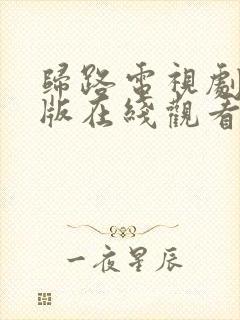 歸路電視劇
版在綫觀看
一夜星辰